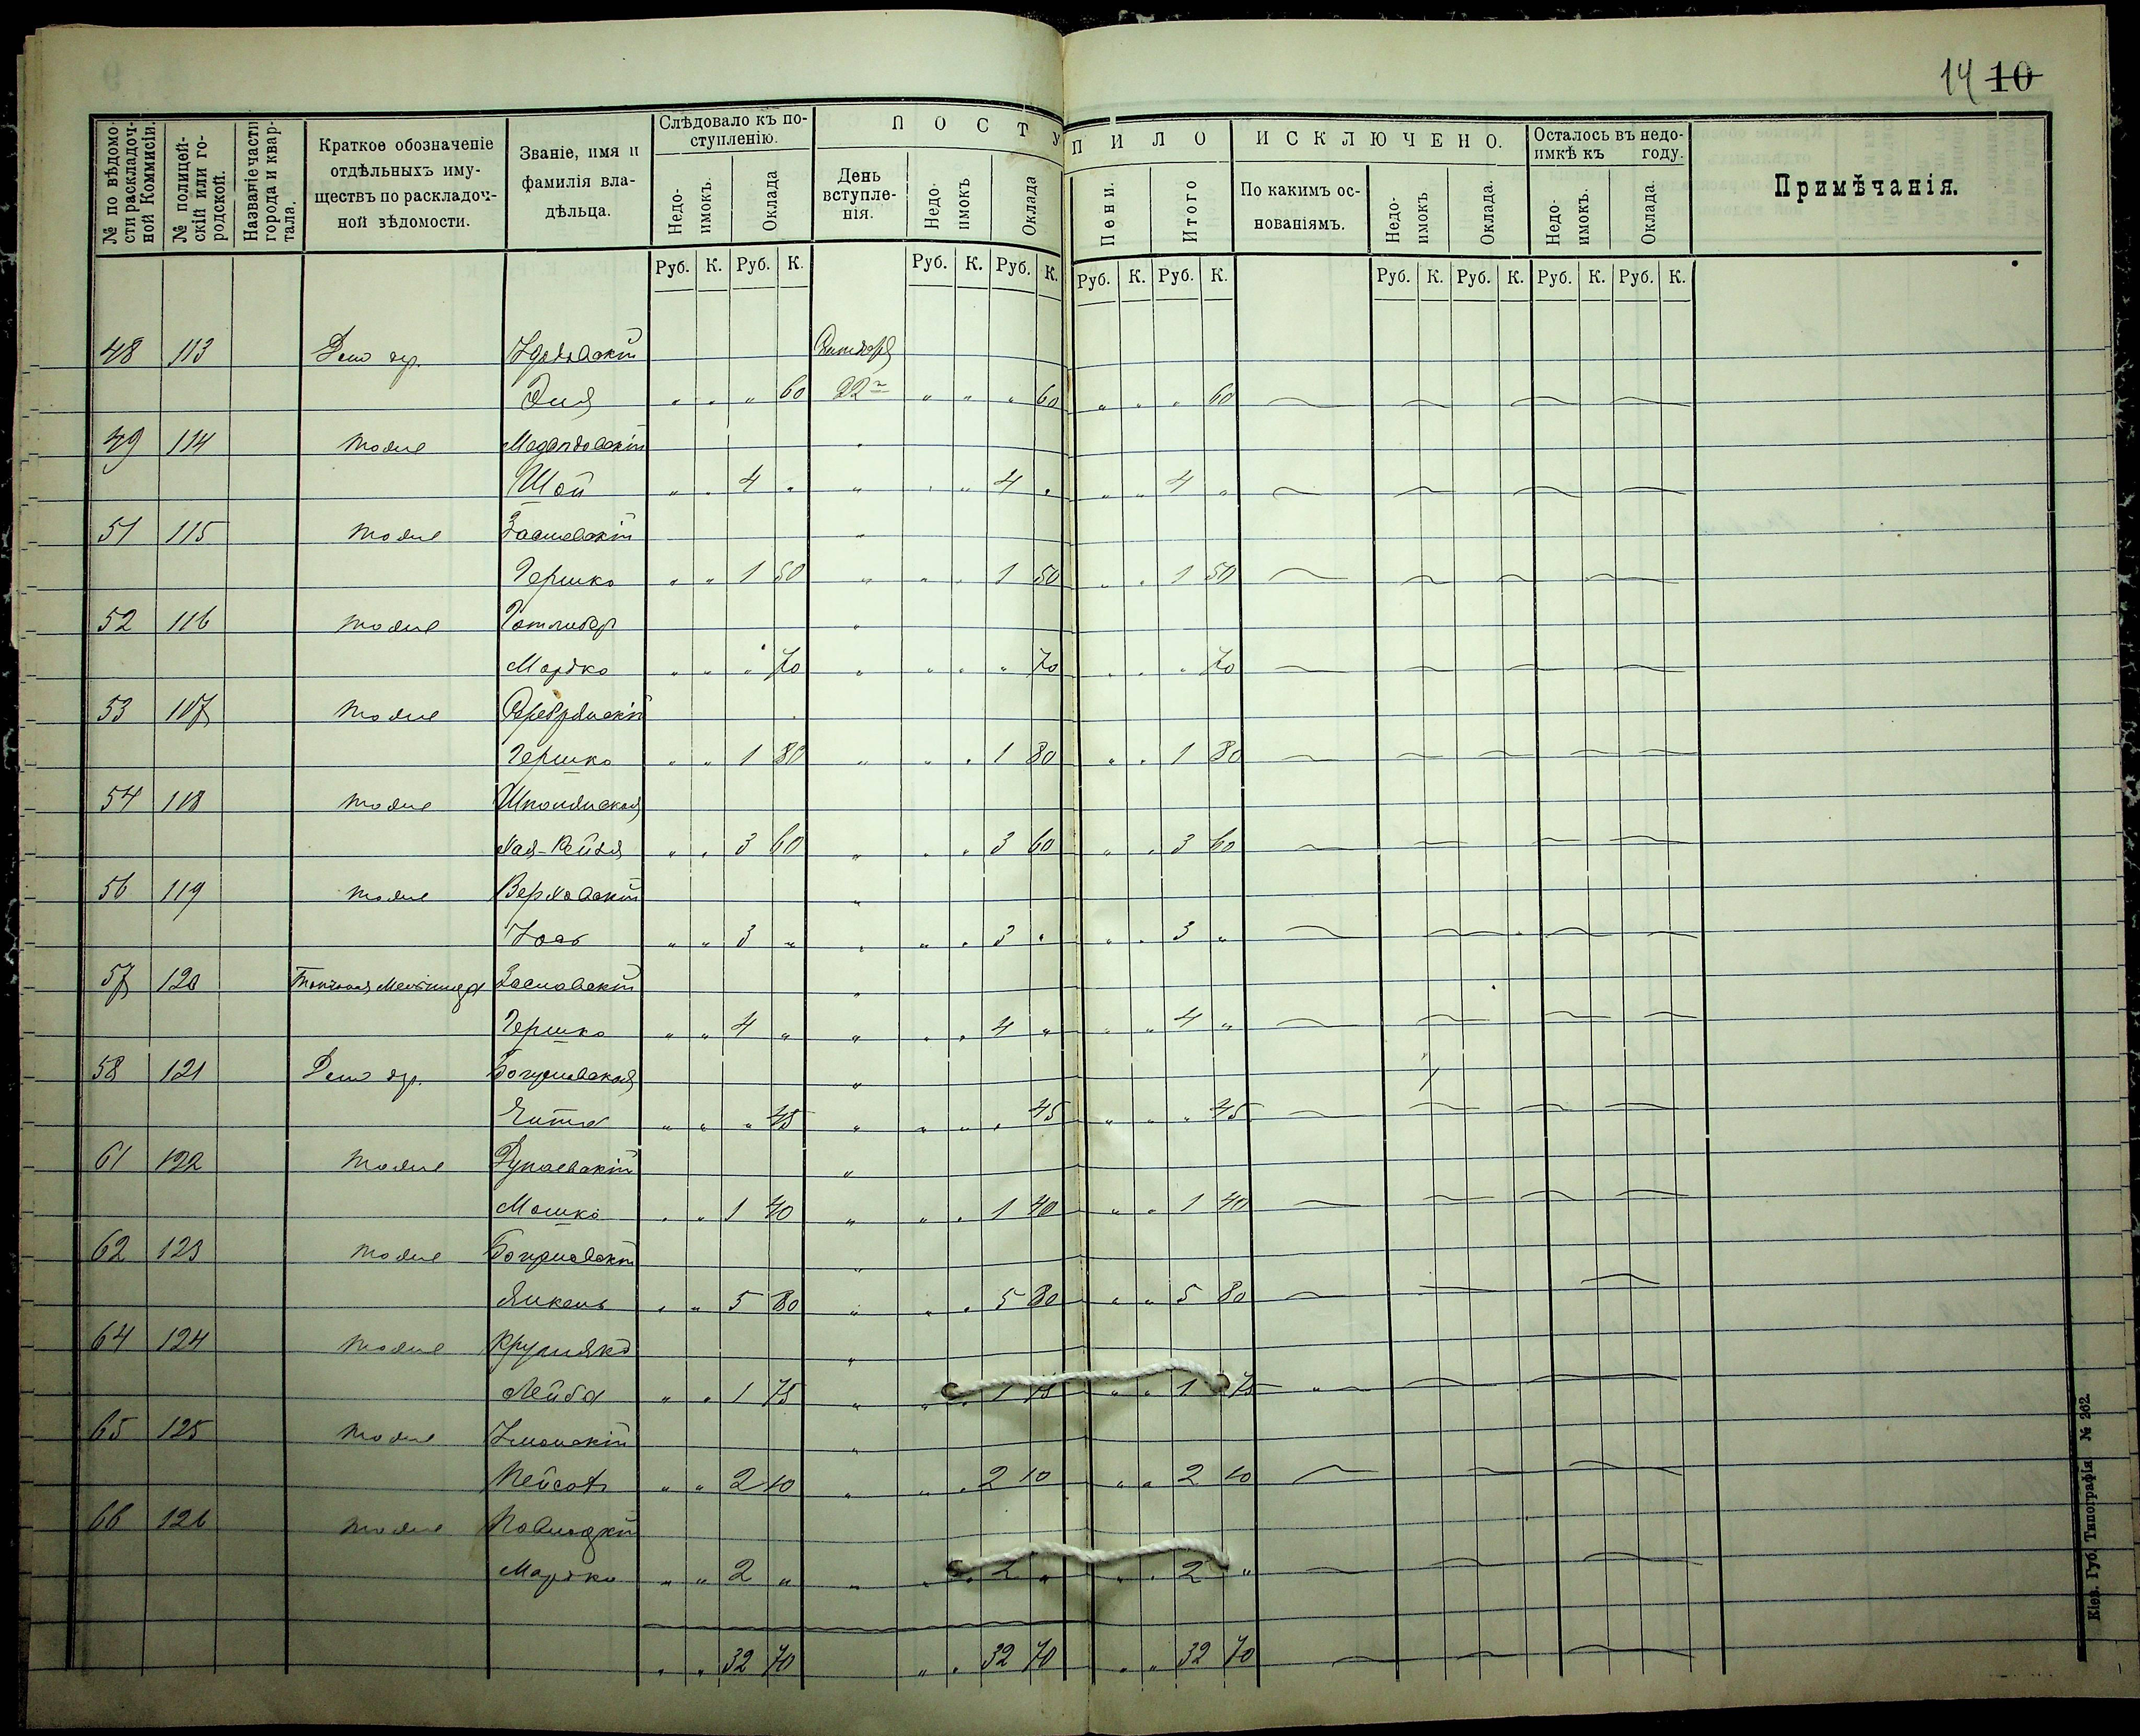 14 10
№ по вѣдомости раскладочной Коммисіи.
№ полицейскій или городской.
Названіе части города и квартала.
Краткое обозначеніе отдѣльныхъ имуществъ по раскладочной вѣдомости.
Званіе, имя и фамилія владѣльца.
Слѣдовало къ поступленію.
Недоимокъ. Оклада
ПОСТУПИЛО
День вступленія. Недоимокъ Оклада Пени. Итого
ИСКЛЮЧЕНО.
По какимъ основаніямъ. Недоимокъ Оклада.
Осталось въ недоимкѣ къ году.
Недоимокъ. Оклада.
Примѣчанія.
Руб. К. Руб. К. Руб. К. Руб. К. Руб. К. Руб. К. Руб. К. Руб. К. Руб. К. Руб. К.
48 113
" " " 60 22 " " " 60 " " " 60
49 114 тоже
" " 4 " " " " 4 " " " 4 "
51 115 тоже Заславскій
Гершко " " 1 50 " " " 1 50 " " 1 50
52 116 тоже Готлибер
Мордко " " " 70 " " " " 70 " " " 70
53 117 тоже Серебрянскій
Гершко " " 1 80 " " " 1 80 " " 1 80
54 118 тоже Шполянская
Хая-Рейзя " " 3 60 " " " 3 60 " " 3 60
56 119 тоже Верховскій
" " 3 " " " " 3 " " " 3 "
57 120 Заславскій
Гершко " " 4 " " " " 4 " " " 4 "
58 121 Богуславская
" " " 45 " " " " 45 " " " 45
61 122 тоже Дунаевскій
Мошко " " 1 40 " " " 1 40 " " 1 40
62 123 тоже Богуславскій
Янкель " " 5 80 " " " 5 80 " " 5 80
64 124 тоже
Лейба " " 1 75 " " " 1 75 " " 1 75
65 125 тоже Уманскій
Пейсах " " 2 10 " " " 2 10 " " 2 10
66 126 тоже Паволоцкій
Мордко " " 2 " " " " 2 " " " 2 "
" " 32 70 " " 32 70 " " 32 70
Кіев. Губ. Типографія. № 262.